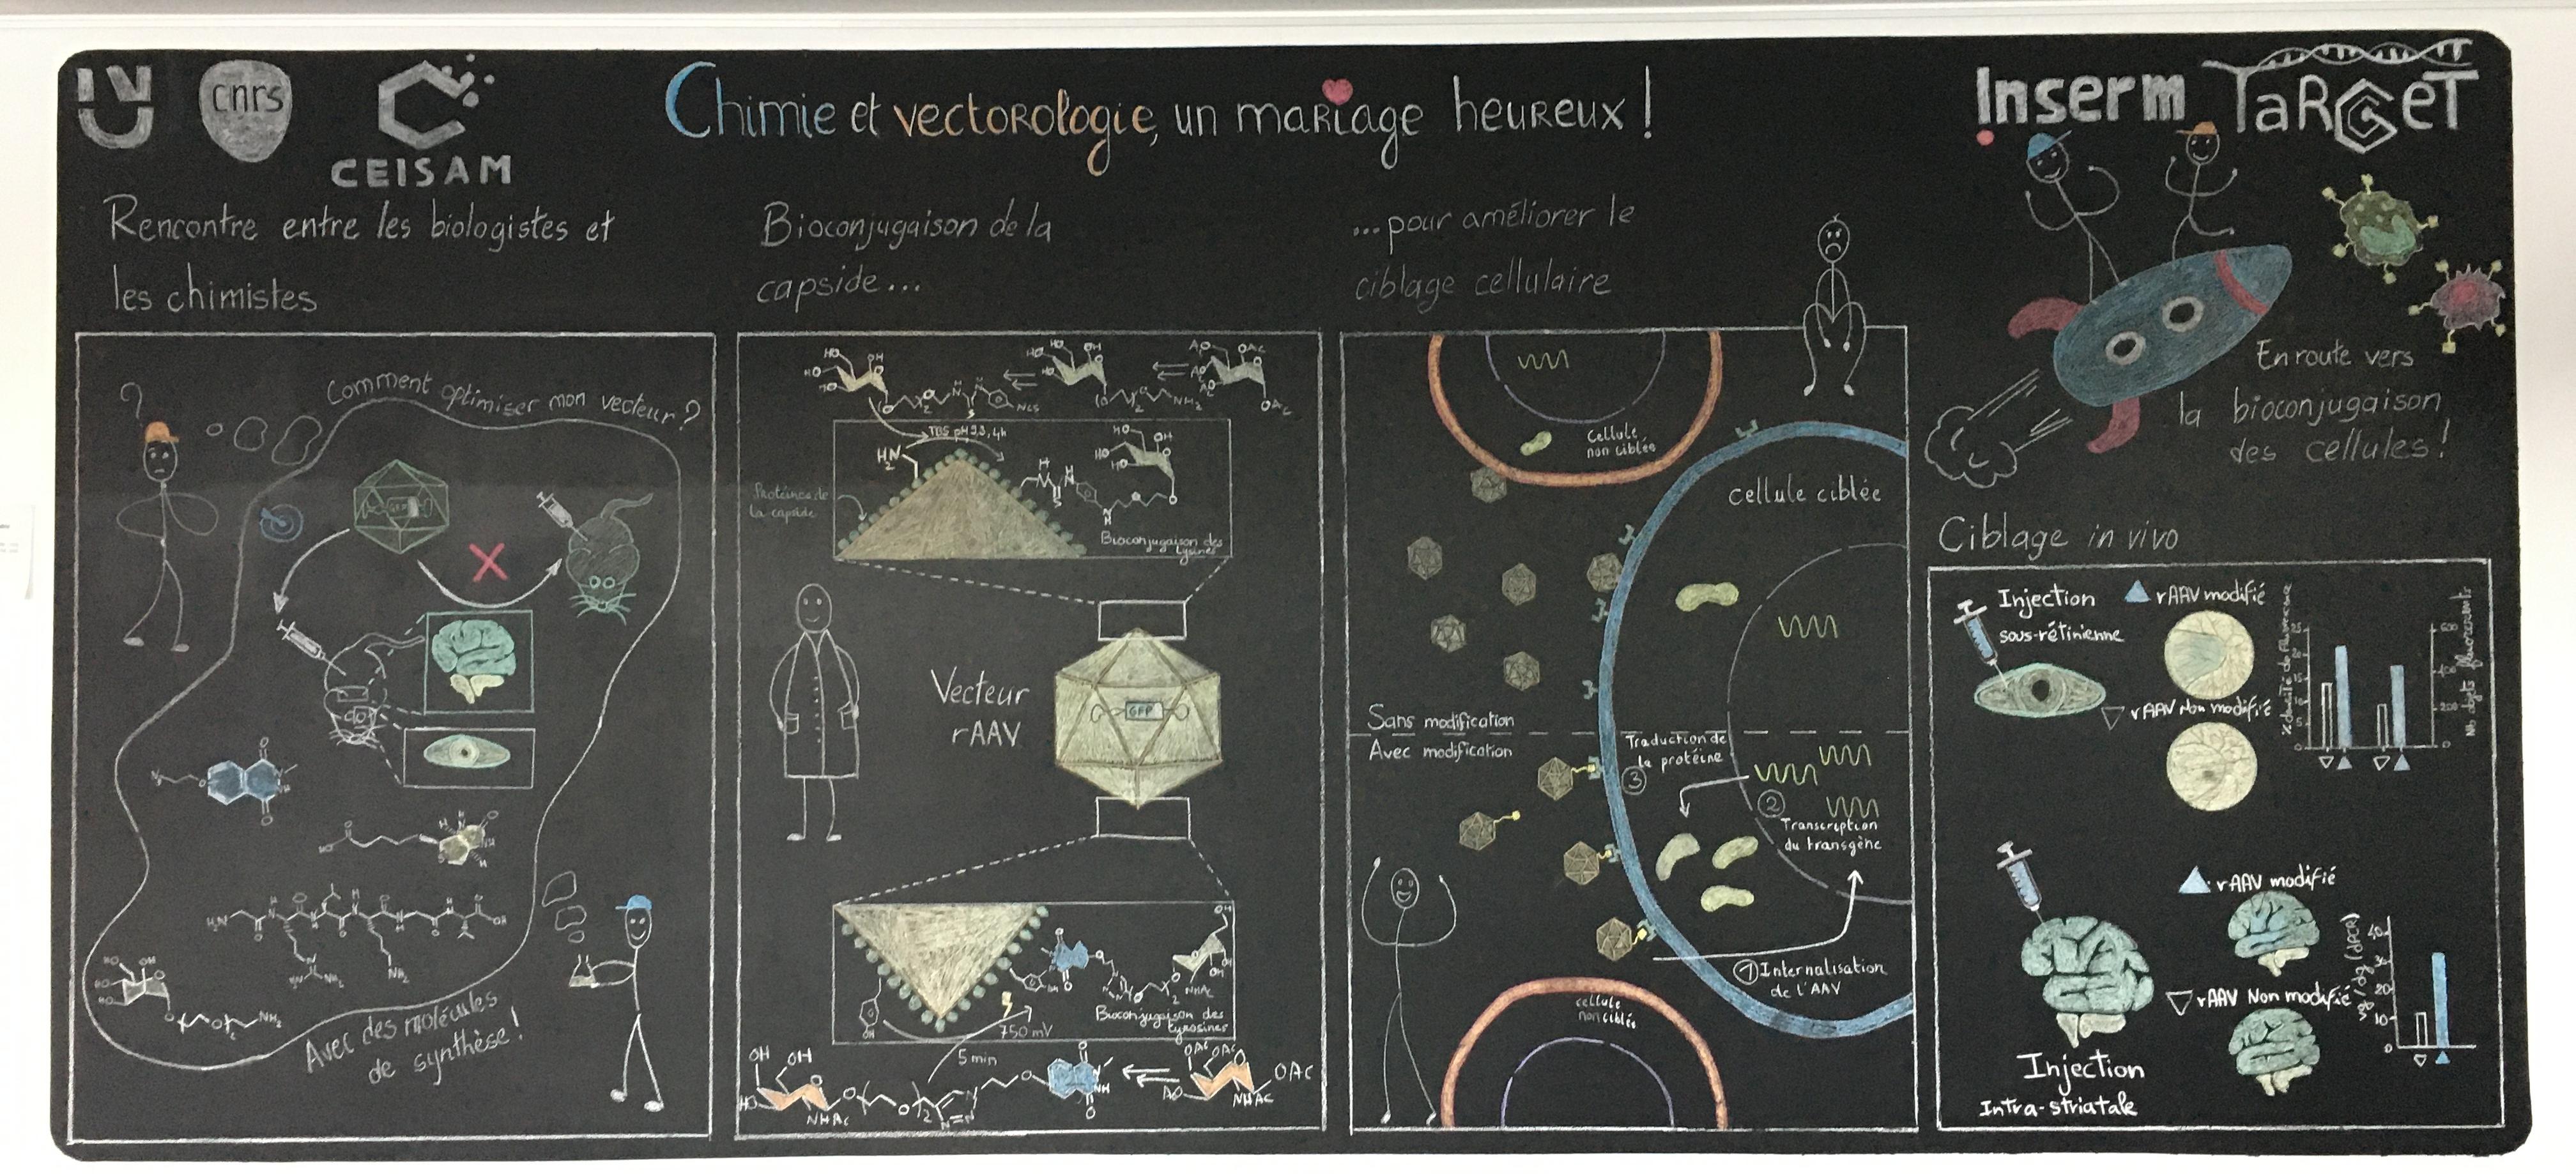 cnrs
CEISAM
Chimie et vectorologie, un mariage heureux !
Inserm
TaRGeT
Rencontre entre les biologistes et
les chimistes
?
Comment optimiser mon vecteur ?
GFP
Avec des molécules
de synthèse !
H₂N
NH₂
OH
HO
NH₂
Bioconjugaison de la
capside...
HO
OH
HO
HO
NCS
NH₂
AcO
OAc
OAc
TBS pH 9.3, 4h
H₂N
Protéines de
la capside
Bioconjugaison des
lysines
Vecteur
rAAV
GFP
Bioconjugaison des
tyrosines
750 mV
5 min
OH
OH
HO
NHAc
NH
OAc
OAc
OAc
NHAc
...pour améliorer le
ciblage cellulaire
Cellule
non ciblée
Cellule ciblée
Sans modification
Avec modification
Traduction de
la protéine
3
2
Transcription
du transgène
1 Internalisation
de l'AAV
cellule
non ciblée
En route vers
la bioconjugaison
des cellules !
Ciblage in vivo
Injection
sous-rétinienne
rAAV modifié
rAAV Non modifié
Nb objets fluorescents
Injection
Intra-striatale
rAAV modifié
rAAV Non modifié
40
30
20
10
0